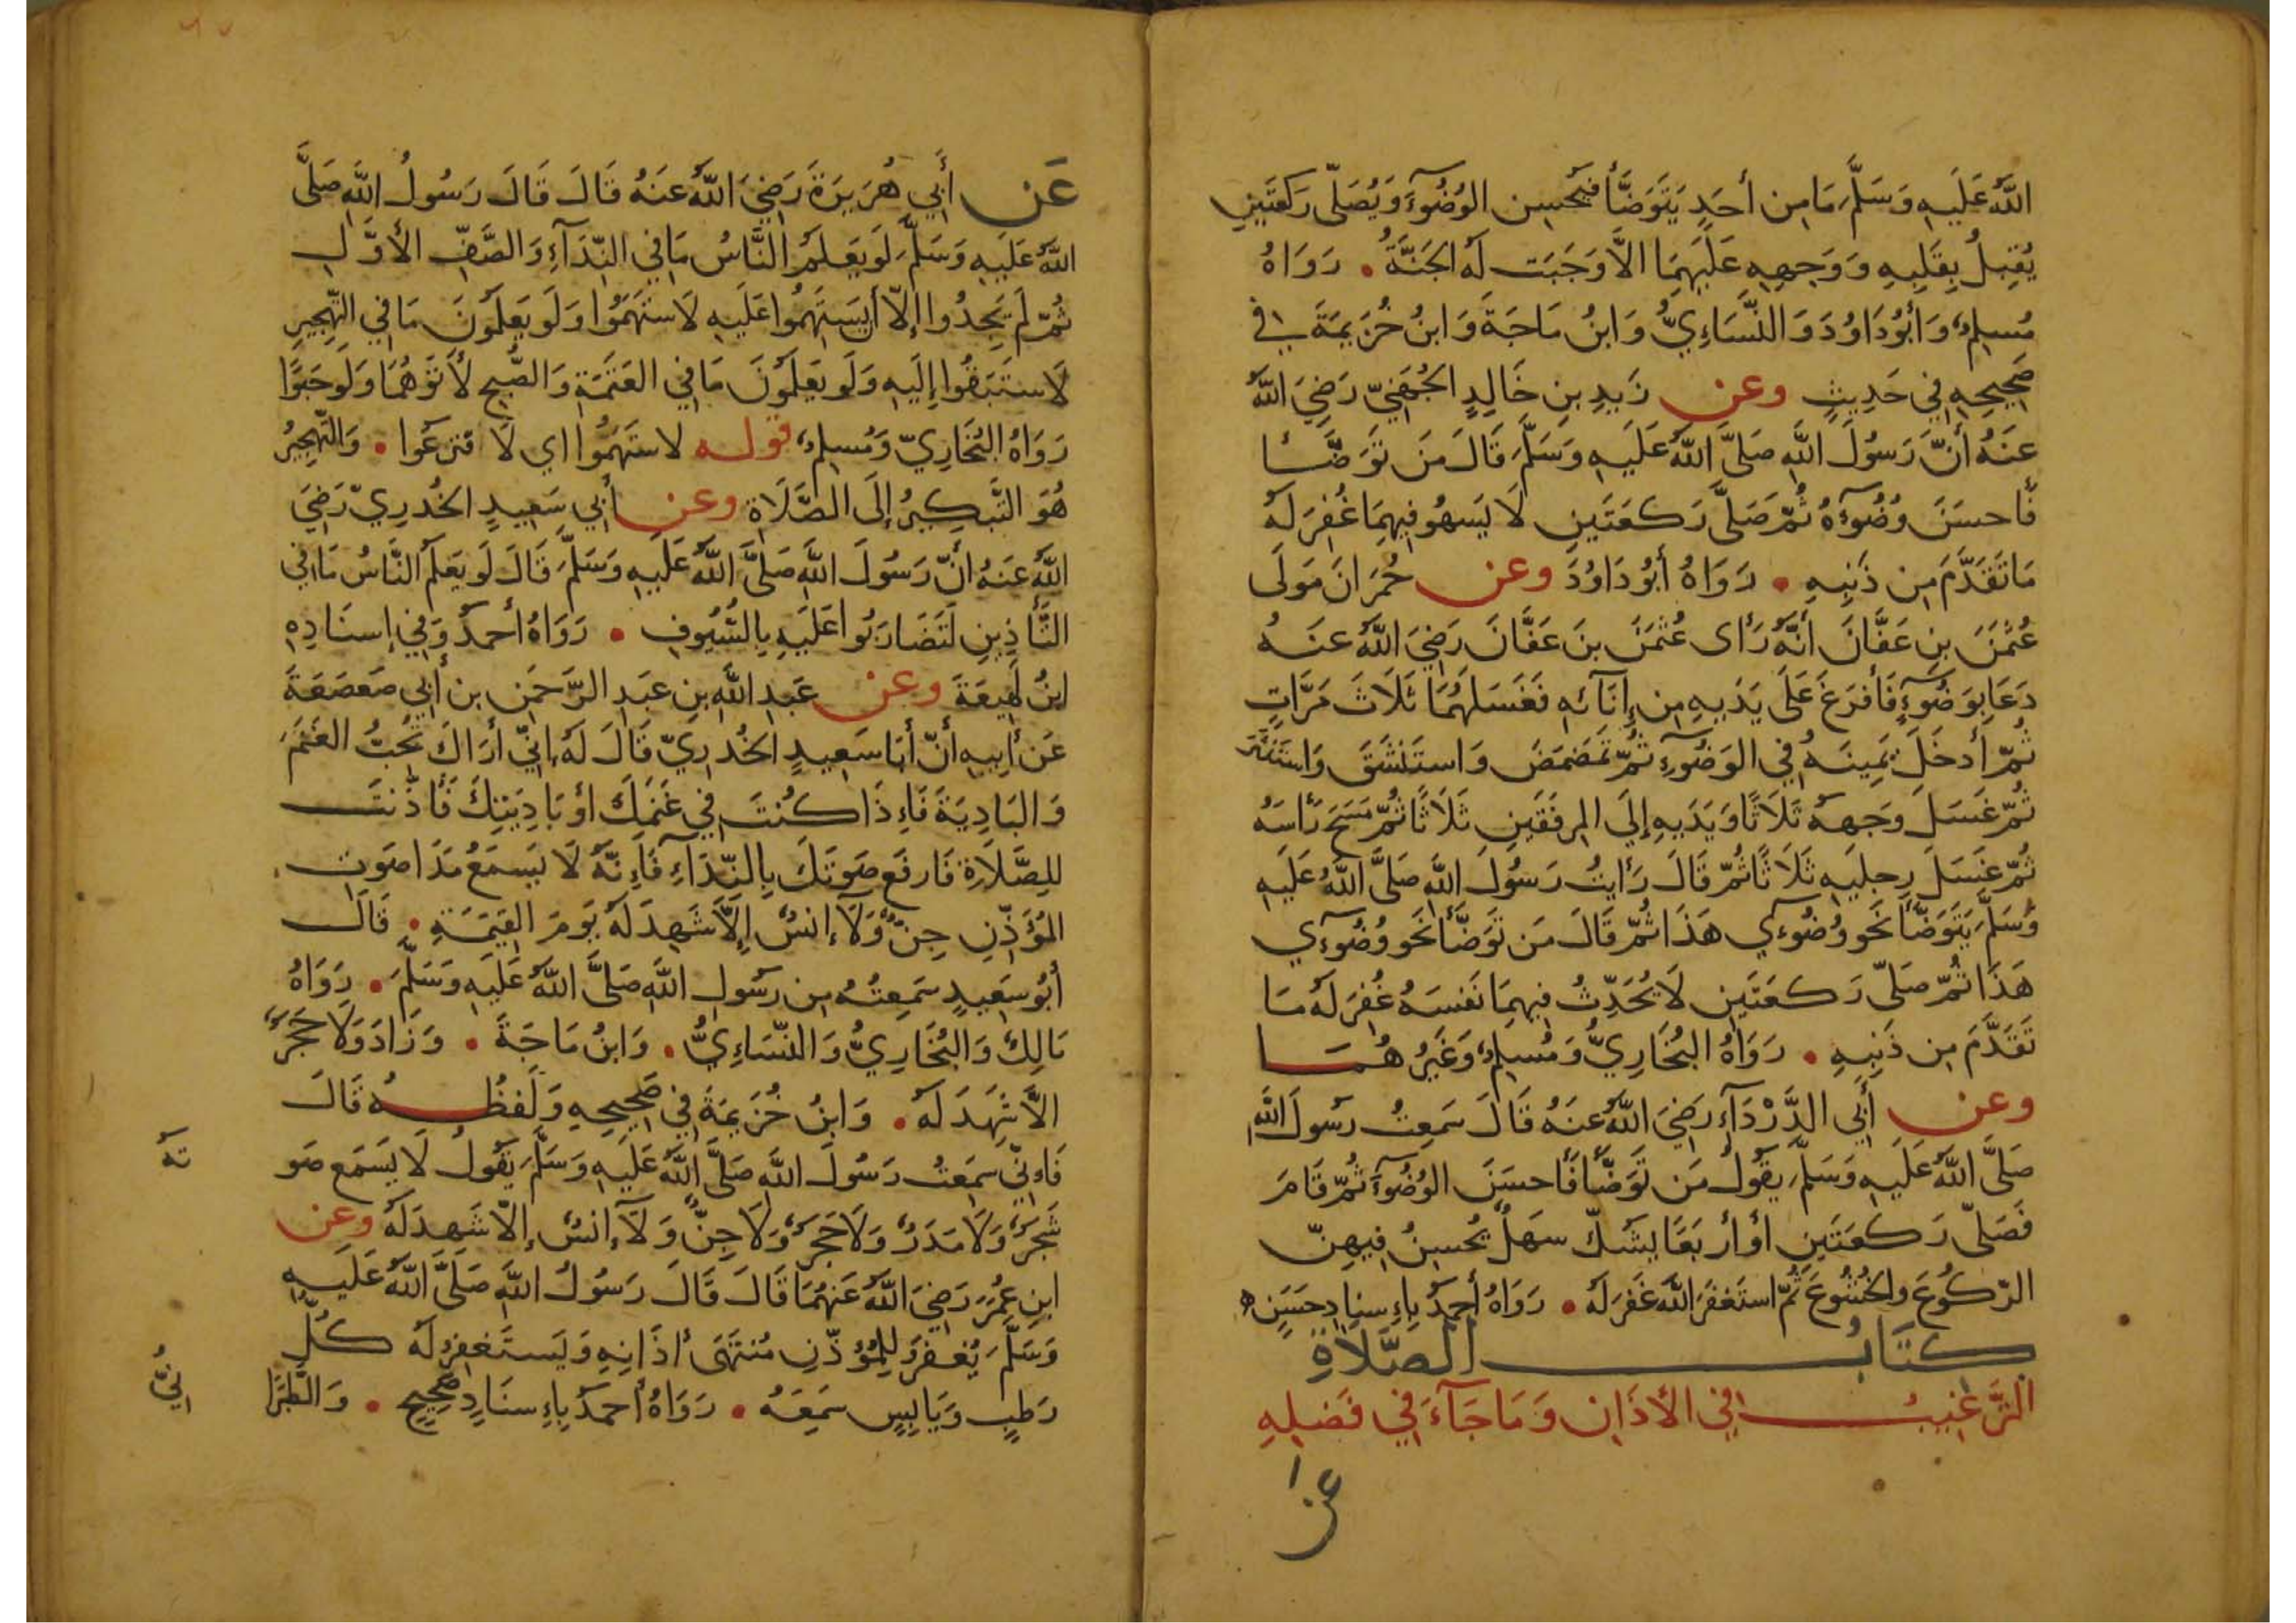 اللَّهُ عَلَيهِ وَسَلَّمَ مَا مِن أَحَدٍ يَتَوَضَّأُ فَيُحسِن الوُضُوٓءَ وَيُصَلّى رَكعَتَينِ
يُقبِلُ بِقَلبِهِ وَوَجهِهِ عَلَيهِمَا الاَّ وَجَبَت لَهُ الجَنَّةُ • رَوَاهُ
مُسلِمٌ وَأَبُو دَاوُدَ وَالنَّسَاءِيُّ وَابنُ مَاجَةَ وَابنُ خُزَيمَةَ فِي
صَحِيحِهِ فِي حَدِيثٍ وعن زَيدِ بنِ خَالِدٍ الجُهَنِيّ رَضِيَ اللَّهُ
عَنَهُ أَنَّ رَسُولَ اللَّهِ صَلَّى اللَّهُ عَلَيهِ وَسَلَّمَ قَالَ مَن تَوَضَّـــأ
فَأحسَنَ وُضُوٓءَهُ ثُمّ صَلَّى رَكعَتَينِ لَا يَسهُو فِيهِمَا غُفِرَ لَهُ
مَا تَقَدَّمَ مِن ذَنبِهِ • رَوَاهُ أَبُو دَاوُدَ وعن حُمرَانَ مَولَى
عُثمَنَ بنِ عَفَّانَ أَنَّهُ رَأى عُثمَنَ بنَ عَفَّانَ رَضِيَ اللَّهُ عَنهُ
دَعَا بِوَضُوٓءٍ فَأَفرَغَ عَلَى يَدَيهِ مِن إِنَآئِهِ فَغَسَلَهُمَا ثَلَاثَ مَرَّاتٍ
ثُمّ أَدخَلَ يَمِينَهُ فِي الوَضُوٓءِ ثُمّ تَمَضمَضَ وَاستَنشَقَ وَاستَنثَرَ
ثُمّ غَسَلَ وَجهَهُ ثَلَاثًا وَيَدَيهِ إِلَى المِرفَقَينِ ثَلَاثًا ثُمّ مَسَحَ رَأسَهُ
ثُمّ غَسَلَ رِجلَيهِ ثَلَاثًا ثُمّ قَالَ رَأَيتُ رَسُولَ اللَّهِ صَلَّى اللَّهُ عَلَيهِ
وَسَلَّمَ يَتَوَضَّأُ نَحوَ وُضُوٓءي هَذَا ثُمّ قَالَ مَن تَوَضَّأَ نَحوَ وُضُوٓءي
هَذَا ثُمّ صَلّى رَكعَتَينِ لَا يُحَدِّثُ فِيهِمَا نَفسَهُ غُفِرَ لَهُ مَا
تَقَدَّمَ مِن ذَنبِهِ • رَوَاهُ البُخَارِيُّ وَمُسلِمٌ وَغَيرُهُمَـــا
وعن أَبِي الدَّرْدَآءِ رَضِيَ اللَّهُ عَنهُ قَالَ سَمِعتُ رَسُولَ اللَّهِ
صَلَّى اللَّهُ عَلَيهِ وَسَلَّمَ يَقُولُ مَن تَوَضَّأَ فَأَحسَنَ الوُضُوٓءَ ثُمّ قَامَ
فَصَلّى رَكعَتَينِ أَو أَربَعًا يَشُكّ سَهلٌ يُحسِنُ فِيهِنّ
الرّكُوعَ وَالخُشُوعَ ثُمّ استَغفَرَ اللَّهَ غَفَرَ لَهُ • رَوَاهُ أَحمَدُ بِاءِسنِادٍ حَسَنٍ
كتَابُ الصَّلاَةِ
التَّرغِيبُ فِي الأَذَانِ وَمَا جَآءَ فِي فَضلِهِ
عن
عَن أَبِي هُرَيرَةَ رَضِيَ اللَّهُ عَنهُ قَالَ قَالَ رَسُولُ اللَّهِ صَلَّى
اللَّهُ عَلَيهِ وَسَلَّمَ لَو يَعلَمُ النَّاسُ مَا فِي النِّدَآءِ وَالصَّفِّ الأَوَّلِ
ثُمّ لَم يَجِدُوا إِلاّ أَن يَستَهِمُوا عَلَيهِ لَاستَهَمُوا وَلَو يَعلَمُونَ مَا فِي التَّهجِيرِ
لَاستَبَقُوا إِلَيهِ وَلَو يَعلَمُونَ مَا فِي العَتَمَةِ وَالصُّبحِ لأَتَوهُمَا وَلَو حَبوًا
رَوَاهُ البُخَارِيّ وَمُسلِمٌ قوله لاستَهَمُوا اي لَا قتَرعُوا • وَالتّهجِيرُ
هُوَ التَّبكِيرُ إِلَى الصَّلَاةِ وعن أَبِي سَعِيدٍ الخُدرِيّ رَضِيَ
اللَّهُ عَنهُ أَنّ رَسُولَ اللَّهِ صَلَّى اللَّهُ عَلَيهِ وَسَلَّمَ قَالَ لَو يَعلَمُ النَّاسُ مَا فِي
التَّأذِينِ لَتَضَارَبُوا عَلَيهِ بِالسُّيُوفِ • رَوَاهُ أَحمَدُ وَفِي إِسنَادِهِ
ابنُ لَهِيعَةَ وعن عَبدِ اللَّهِ بنِ عَبدِ الرَّحمَنِ بنِ أَبِي صَعصَعَةَ
عَن أَبِيهِ أَنّ أَبَا سَعِيدٍ الخُدرِيّ قَالَ لَهُ انِّي أَرَاكَ تُحِبُّ الغَنَمَ
وَالبَادِيَةَ فَاءِذَا كُنتَ فِي غَنَمِكَ أَو بَادِيَتِكَ فَأَذَّنتَ
لِلصَّلَاةِ فَارفَع صَوتَكَ بِالنِّدَآءِ فَاءِنَّهُ لَا يَسمَعُ مَدَا صَوتِ
المُؤَذِّنِ جِنٌّ وَلَآ إِنسٌ إِلاَّ شَهِدَ لَهُ يَومَ القِيَمَةِ • قَالَ
أَبُو سَعِيدٍ سَمِعتُهُ مِن رَسُولِ اللَّهِ صَلَّى اللَّهُ عَلَيهِ وَسَلَّمَ • رَوَاهُ
مَالِكٌ وَالبُخَارِيُّ وَالنّسَاءِيُّ • وَابنُ مَاجَةَ • وَزَادَ وَلَا حَجَرٌ
الاَّ شَهِدَ لَهُ • وَابنُ خُزَيمَةَ فِي صَحِيحِهِ وَلَفظُـــهُ قَالَ
فَاءِنّي سَمِعتُ رَسُولَ اللَّهِ صَلَّى اللَّهُ عَلَيهِ وَسَلَّمَ يَقُولُ لَا يَسمَع صَو
تَهُ
شَجَرٌ وَلَا مَدَرٌ وَلَا حَجَرٌ وَلَا جِنٌّ وَلَآ إِنسٌ إِلاّ شَهِدَ لَهُ وعن
ابنِ عُمَرَ رَضِيَ اللَّهُ عَنهُمَا قَالَ قَالَ رَسُولُ اللَّهِ صَلَّى اللَّهُ عَلَيهِ
وَسَلَّمَ يُغفَرُ لِلمُؤَذّنِ مُنتَهَى أَذَانِهِ وَيَستَغفِرُ لَهُ كُلُّ
رَطبٍ وَيَابِسٍ سَمِعَهُ • رَوَاهُ أَحمَدُ بِاءِسنَادٍ صَحِيحٍ • وَالطَّبرَا
نِيُّ